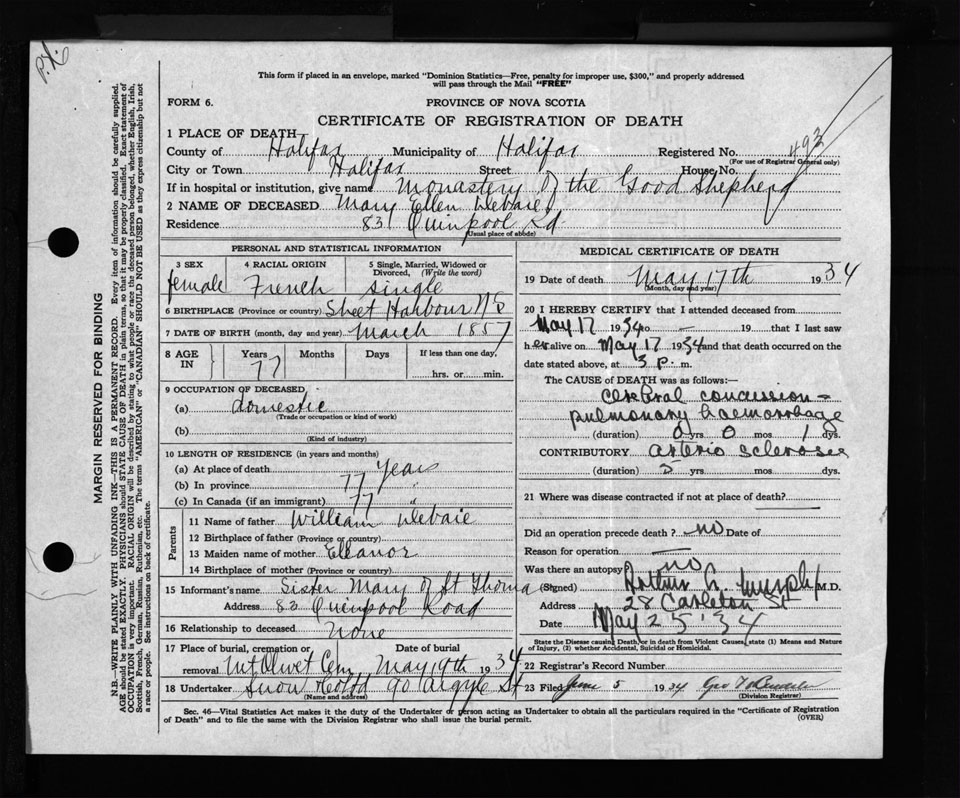 P.X.
This form if placed in an envelope, marked "Dominion Statistics—Free, penalty for improper use, $300," and properly addressed
will pass through the Mail "FREE"
FORM 6.
PROVINCE OF NOVA SCOTIA
CERTIFICATE OF REGISTRATION OF DEATH
1 PLACE OF DEATH—
County of Halifax Municipality of Halifax Registered No. 493
(For use of Registrar General only)
City or Town Halifax Street House No.
If in hospital or institution, give name Monastery of the Good Shepherd
2 NAME OF DECEASED Mary Ellen Webaie
Residence 83 Quinpool Rd
(Usual place of abode)
PERSONAL AND STATISTICAL INFORMATION
3 SEX 4 RACIAL ORIGIN 5 Single, Married, Widowed or
Divorced, (Write the word)
female French single
6 BIRTHPLACE (Province or country) Sheet Harbour NS
7 DATE OF BIRTH (month, day and year) March 1857
8 AGE IN Years Months Days If less than one day,
77 hrs. or min.
9 OCCUPATION OF DECEASED
(a) domestic
(Trade or occupation or kind of work)
(b)
(Kind of industry)
10 LENGTH OF RESIDENCE (in years and months)
(a) At place of death years
(b) In province 77 "
(c) In Canada (if an immigrant) 77 "
Parents
11 Name of father William Webaie
12 Birthplace of father (Province or country)
13 Maiden name of mother Eleanor
14 Birthplace of mother (Province or country)
15 Informant's name Sister Mary of St Thoma
Address 83 Quinpool Road
16 Relationship to deceased None
17 Place of burial, cremation or Date of burial
removal Mt Olivet Cem May 19th 1934
18 Undertaker Snow & Co Ltd 90 Argyle St
(Name and address)
MEDICAL CERTIFICATE OF DEATH
19 Date of death May 17th 1934
(Month, day and year)
20 I HEREBY CERTIFY that I attended deceased from
May 17 1934 to — 19 that I last saw
her alive on May 17 1934 and that death occurred on the
date stated above, at 3 p. m.
The CAUSE OF DEATH was as follows:—
cerebral concussion -
pulmonary haemorrhage
(duration) 0 yrs 0 mos 1 dys.
CONTRIBUTORY arterio sclerosis
(duration) 5 yrs mos dys.
21 Where was disease contracted if not at place of death?
Did an operation precede death? no Date of
Reason for operation —
Was there an autopsy no
(Signed) Arthur Murphy M.D.
Address 28 Carleton St
Date May 25 '34
State the Disease causing Death, or in death from Violent Causes, state (1) Means and Nature
of Injury, (2) whether Accidental, Suicidal or Homicidal.
22 Registrar's Record Number
23 Filed June 5 1934 Geo
(Division Registrar)
Sec. 46—Vital Statistics Act makes it the duty of the Undertaker or person acting as Undertaker to obtain all the particulars required in the "Certificate of Registration
of Death" and to file the same with the Division Registrar who shall issue the burial permit.
(OVER)
MARGIN RESERVED FOR BINDING
N.B.—WRITE PLAINLY WITH UNFADING INK—THIS IS A PERMANENT RECORD. Every item of information should be carefully supplied.
AGE should be stated EXACTLY. PHYSICIANS should STATE CAUSE OF DEATH in plain terms, so that it may be properly classified. Exact statement of
OCCUPATION is very important. RACIAL ORIGIN will be described by stating to what people or race the deceased person belonged, whether English, Irish,
Scottish, French, German, Russian, Ruthenian, etc. The terms "AMERICAN" or "CANADIAN" SHOULD NOT BE USED as they express citizenship but not
a race or people. See instructions on back of certificate.